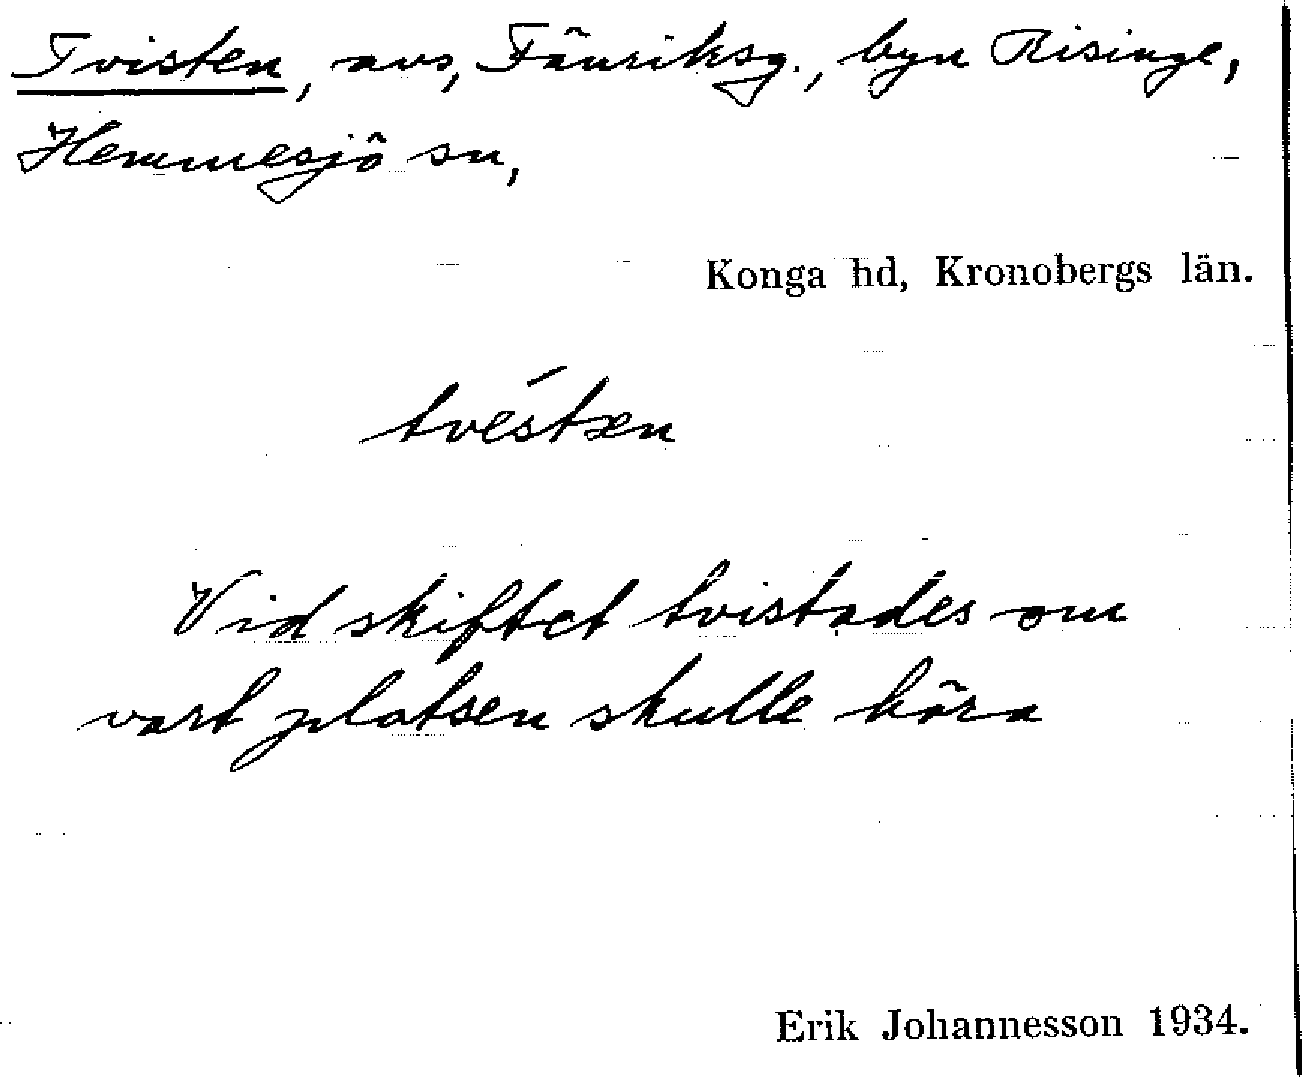 Tvisten, avs, Fänriksg., byn Risinge,
Hemmesjö sn,
Konga hd, Kronobergs län.
tvéstæn
Vid skiftet tvistades om
vart platsen skulle höra
Erik Johannesson 1934.